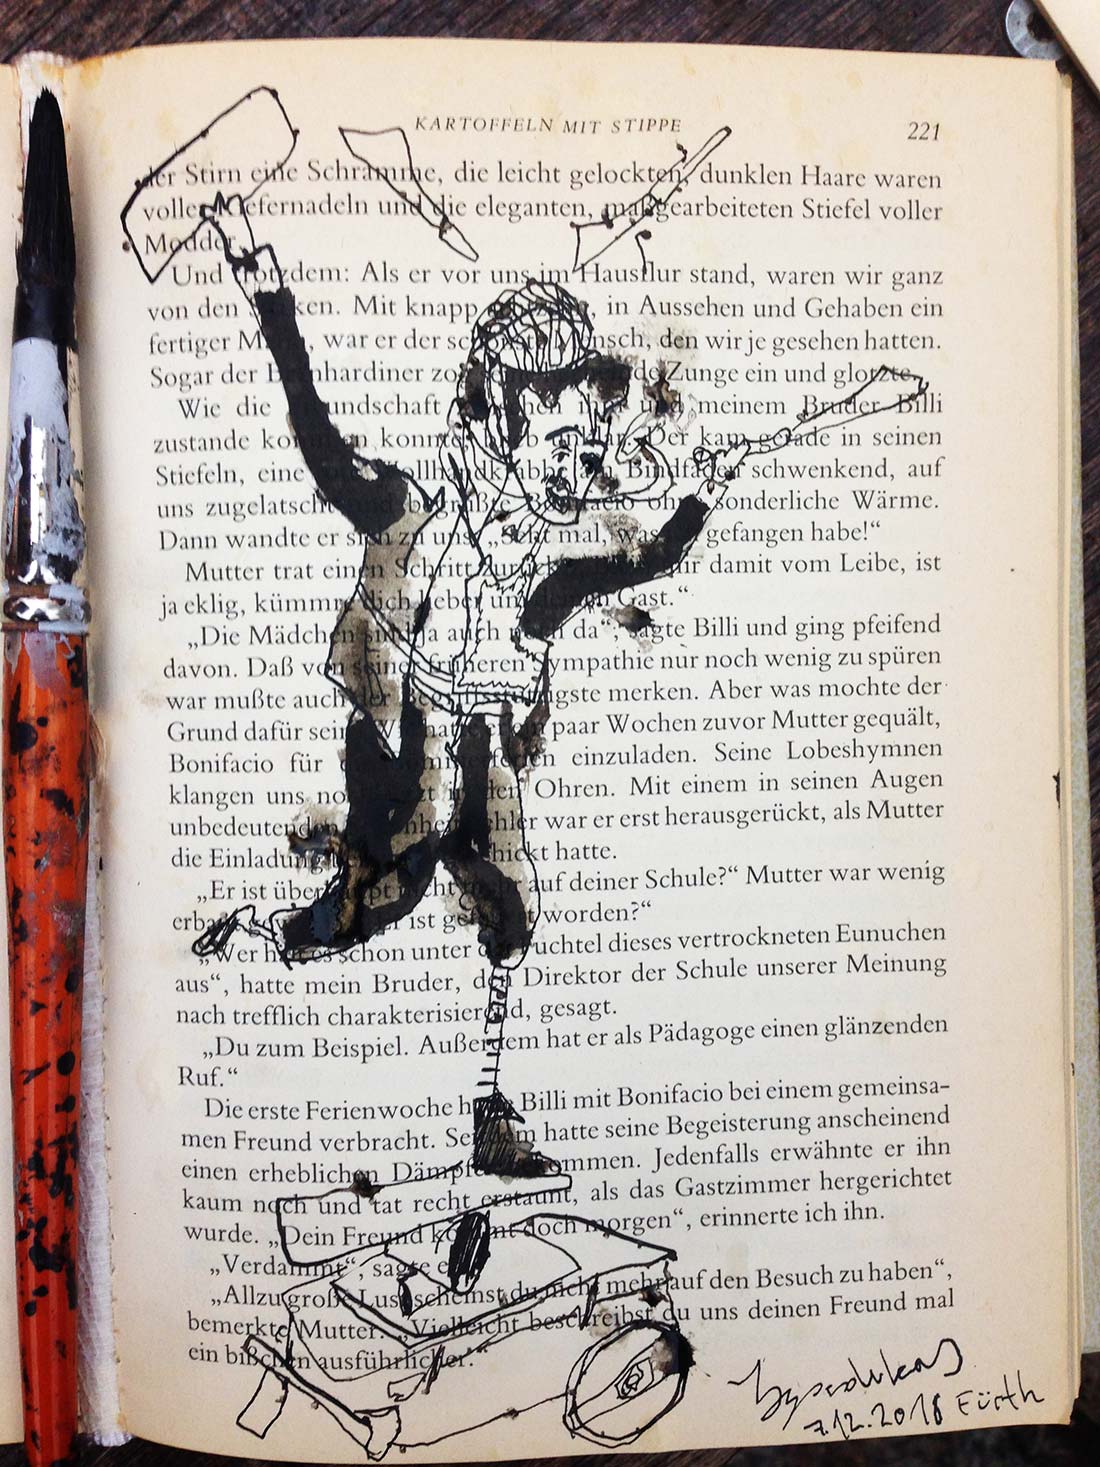 KARTOFFELN MIT STIPPE
221
der Stirn eine Schramme, die leicht gelockten, dunklen Haare waren
voller Kiefernadeln und die eleganten, maßgearbeiteten Stiefel voller
Modder.
Und trotzdem: Als er vor uns im Hausflur stand, waren wir ganz
von den Socken. Mit knapp in Aussehen und Gehaben ein
fertiger Mann, war er der schönste Mensch, den wir je gesehen hatten.
Sogar der Bernhardiner zog Zunge ein und glotzte.
Wie die Freundschaft zwischen ihm und meinem Bruder Billi
zustande kommen konnte, blieb unklar. Der kam gerade in seinen
Stiefeln, eine Wollhandkrabbe am Bindfaden schwenkend, auf
uns zugelatscht und begrüßte Bonifacio ohne sonderliche Wärme.
Dann wandte er sich zu uns: „Seht mal, was ich gefangen habe!“
Mutter trat einen Schritt zurück. mir damit vom Leibe, ist
ja eklig, kümmre dich lieber um deinen Gast.“
„Die Mädchen sind ja auch noch da“, sagte Billi und ging pfeifend
davon. Daß von seiner früheren Sympathie nur noch wenig zu spüren
war mußte auch der Begriffsstutzigste merken. Aber was mochte der
Grund dafür sein? Wie hatte er ein paar Wochen zuvor Mutter gequält,
Bonifacio für die Sommerferien einzuladen. Seine Lobeshymnen
klangen uns noch jetzt in den Ohren. Mit einem in seinen Augen
unbedeutenden Schönheitsfehler war er erst herausgerückt, als Mutter
die Einladung schickt hatte.
„Er ist überhaupt nicht mehr auf deiner Schule?“ Mutter war wenig
erbaut gewesen. „Er ist gefeuert worden?“
„Wer hält es schon unter der Fuchtel dieses vertrockneten Eunuchen
aus“, hatte mein Bruder, den Direktor der Schule unserer Meinung
nach trefflich charakterisierend, gesagt.
„Du zum Beispiel. Außerdem hat er als Pädagoge einen glänzenden
Ruf.“
Die erste Ferienwoche hatte Billi mit Bonifacio bei einem gemeinsa-
men Freund verbracht. Seitdem hatte seine Begeisterung anscheinend
einen erheblichen Dämpfer bekommen. Jedenfalls erwähnte er ihn
kaum noch und tat recht erstaunt, als das Gastzimmer hergerichtet
wurde. „Dein Freund kommt doch morgen“, erinnerte ich ihn.
„Verdammt“, sagte er.
„Allzu große Lust scheinst du nicht mehr auf den Besuch zu haben“,
bemerkte Mutter. „Vielleicht beschreibst du uns deinen Freund mal
ein bißchen ausführlicher.“
7.12.2018 Fürth